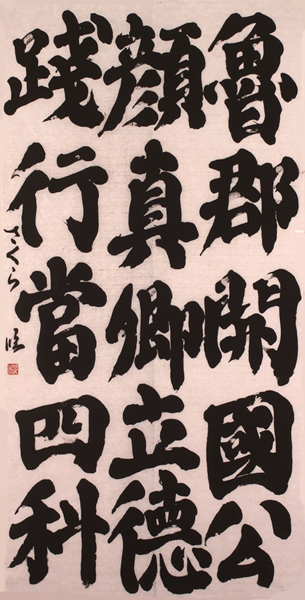 魯郡開國公
顔真卿立德
踐行當四科
さくら臨